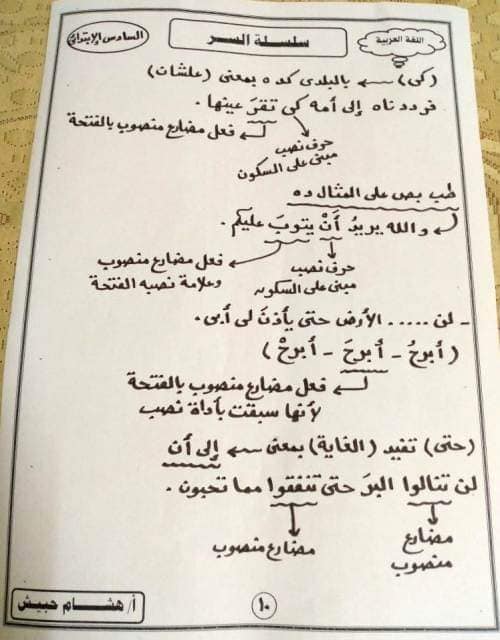 اللغة العربية
سلسلة السر
السادس الإبتدائى
(كى) ← بالبلدى كده بمعنى (علشان)
فرددناه إلى أمه كى تقرَ عينها .
فعل مضارع منصوب بالفتحة
حرف نصب
مبنى على السكون
طب بص على المثال ده
والله يريدُ أنْ يتوبَ عليكم .
فعل مضارع منصوب
وعلامة نصبه الفتحة
حرف نصب
مبنى على السكون
- لن ..... الأرض حتى يأذنَ لى أبى .
( أبرحُ - أبرحَ - أبرحْ )
فعل مضارع منصوب بالفتحة
لأنها سبقت بأداة نصب
(حتى) تفيد (الغاية) بمعنى ← إلى أن
لن تنالوا البرَ حتى تنفقوا مما تحبون .
مضارع
منصوب
مضارع منصوب
١٠
أ/ هشام حبيش